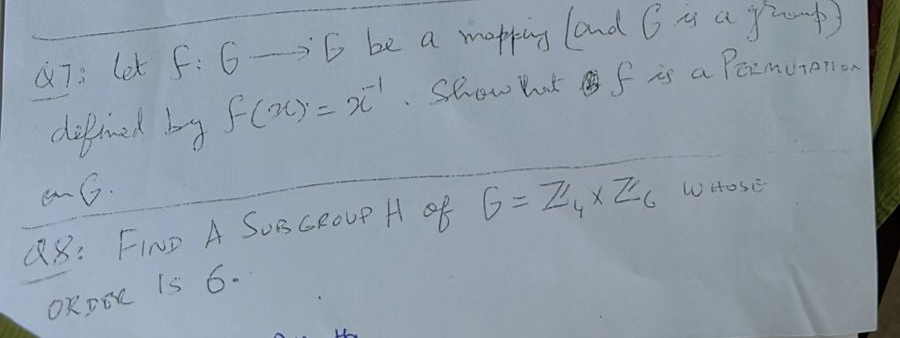 Q7: Let f: G → G be a mapping (and G is a group)
defined by f(x) = x⁻¹. Show that f is a PERMUTATION
on G.
Q8: FIND A SUBGROUP H of G = ℤ₄ × ℤ₆ WHOSE
ORDER IS 6.